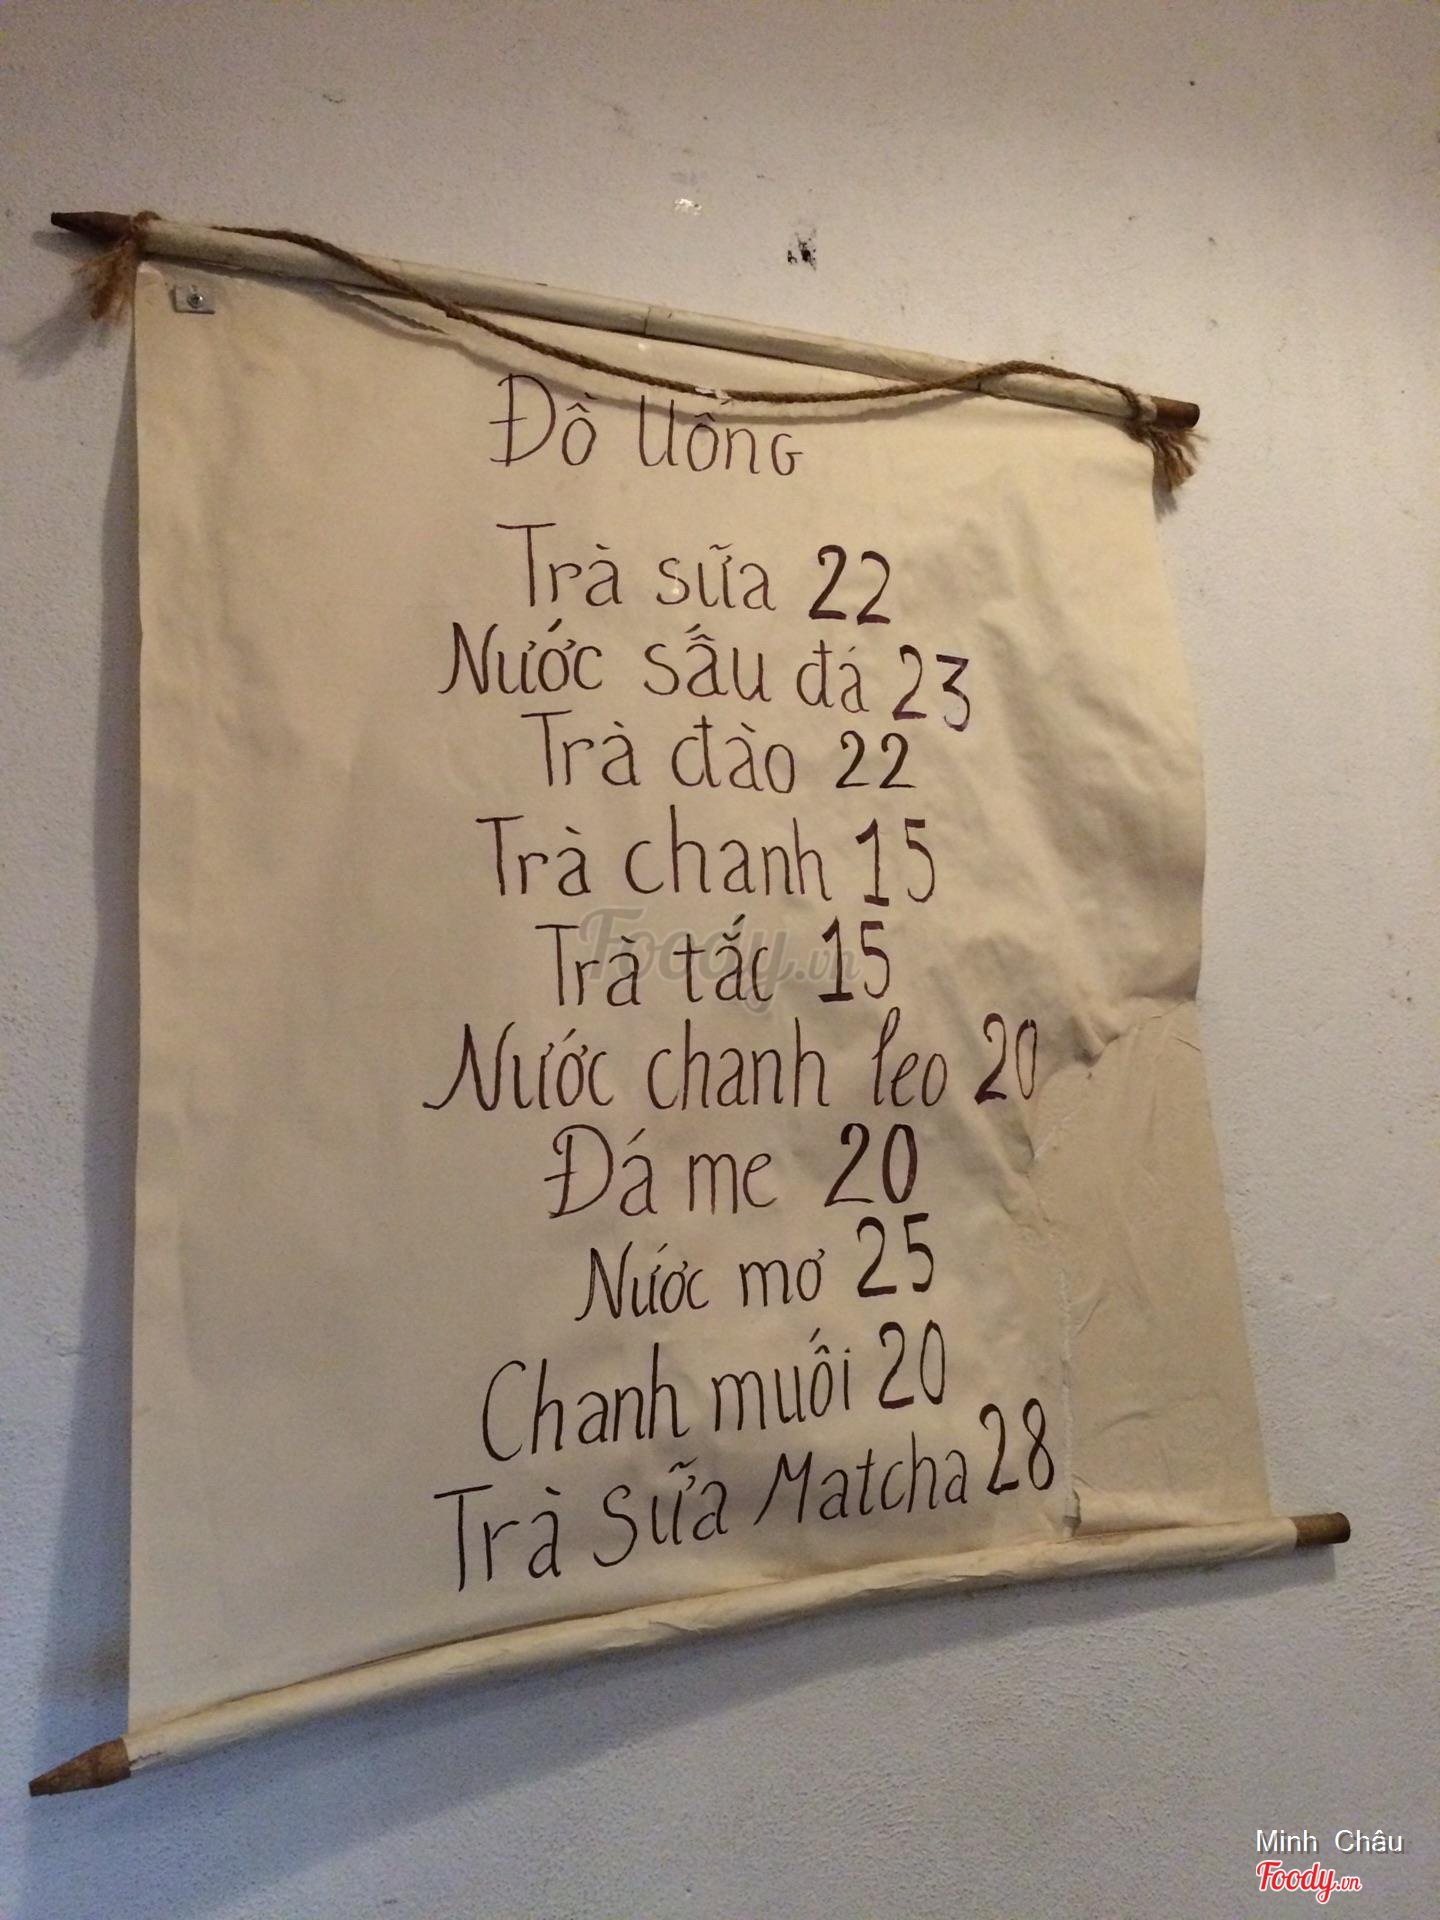 Đồ Uống
Trà sữa 22
Nước sấu đá 23
Trà đào 22
Trà chanh 15
Trà tắc 15
Foody.vn
Nước chanh leo 20
Đá me 20
Nước mơ 25
Chanh muối 20
Trà Sữa Matcha 28
Minh Châu
Foody.vn